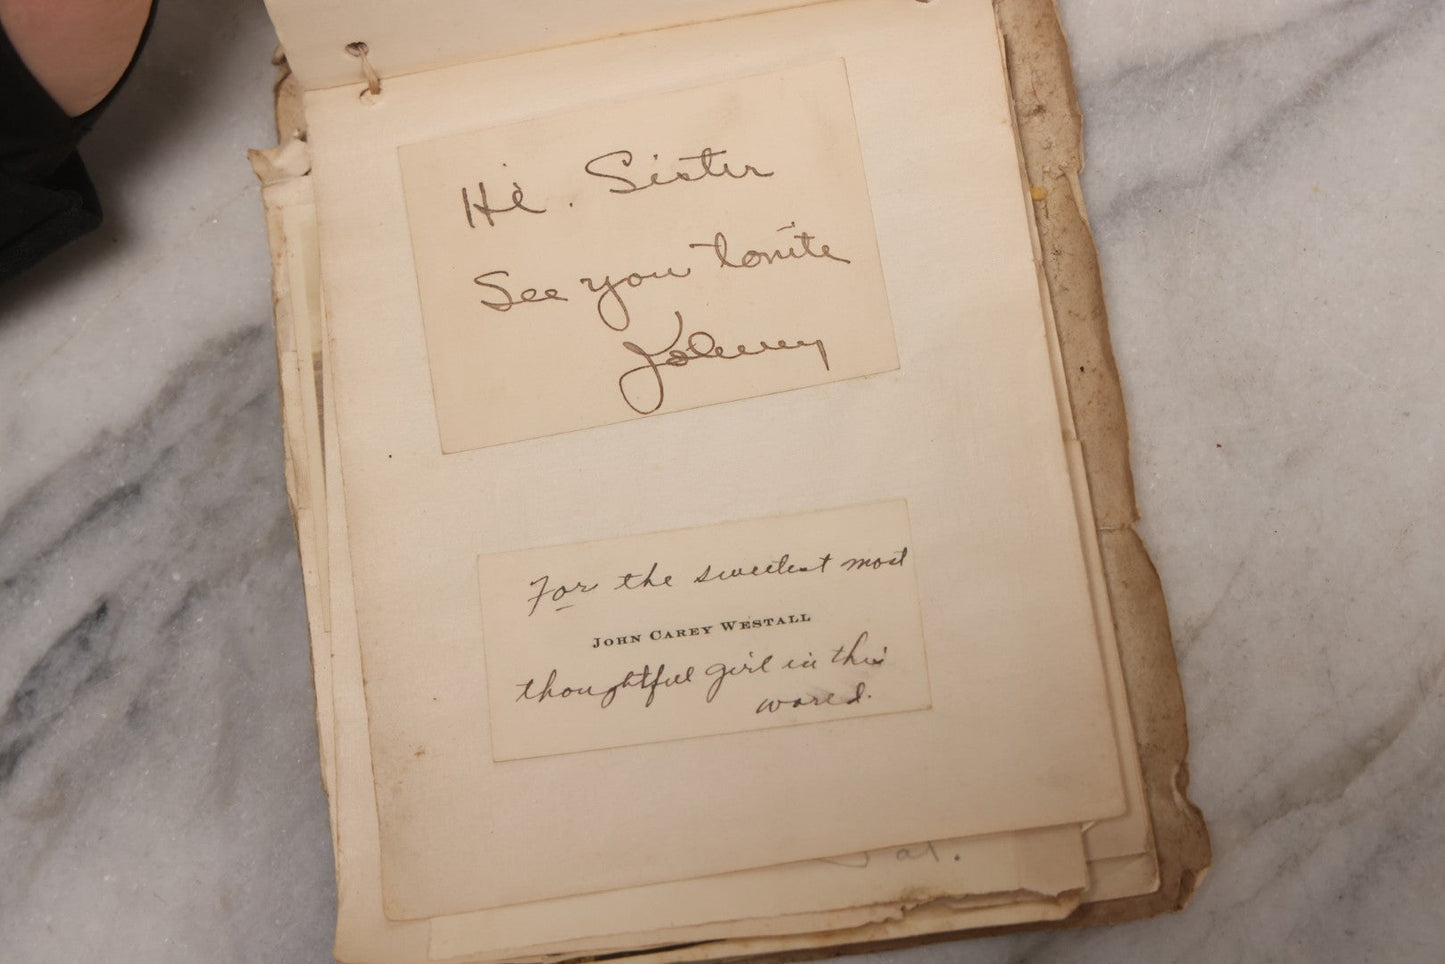 Hi. Sister
See you tonite
Johnny
For the sweetest most
JOHN CAREY WESTALL
thoughtful girl in this
world.